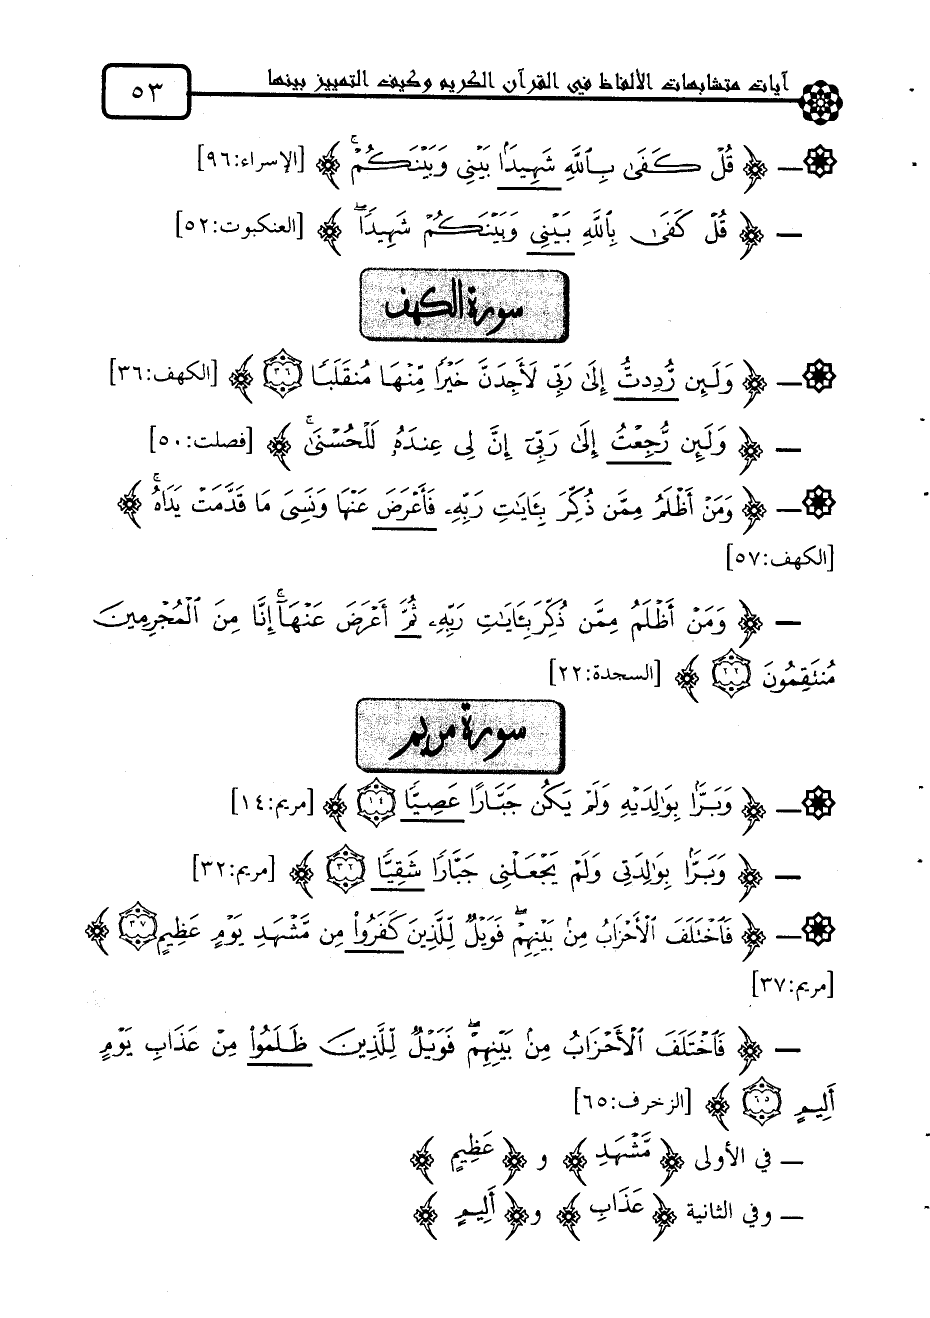 آيات متشابهات الألفاظ في القرآن الكريم وكيف التمييز بينها ٥٣
— ﴿ قُلْ كَفَىٰ بِٱللَّهِ شَهِيدًۢا بَيْنِى وَبَيْنَكُمْ ۚ ﴾ [الإسراء:٩٦]
— ﴿ قُلْ كَفَىٰ بِٱللَّهِ بَيْنِى وَبَيْنَكُمْ شَهِيدًا ۖ ﴾ [العنكبوت:٥٢]
سورة الكهف
— ﴿ وَلَئِن رُّدِدتُّ إِلَىٰ رَبِّى لَأَجِدَنَّ خَيْرًا مِّنْهَا مُنقَلَبًا ٣٦ ﴾ [الكهف:٣٦]
— ﴿ وَلَئِن رُّجِعْتُ إِلَىٰ رَبِّىٓ إِنَّ لِى عِندَهُۥ لَلْحُسْنَىٰ ۚ ﴾ [فصلت:٥٠]
— ﴿ وَمَنْ أَظْلَمُ مِمَّن ذُكِّرَ بِـَٔايَـٰتِ رَبِّهِۦ فَأَعْرَضَ عَنْهَا وَنَسِىَ مَا قَدَّمَتْ يَدَاهُ ۚ ﴾
[الكهف:٥٧]
— ﴿ وَمَنْ أَظْلَمُ مِمَّن ذُكِّرَ بِـَٔايَـٰتِ رَبِّهِۦ ثُمَّ أَعْرَضَ عَنْهَآ ۚ إِنَّا مِنَ ٱلْمُجْرِمِينَ
مُنتَقِمُونَ ٢٢ ﴾ [السجدة:٢٢]
سورة مريم
— ﴿ وَبَرًّۢا بِوَٰلِدَيْهِ وَلَمْ يَكُن جَبَّارًا عَصِيًّا ١٤ ﴾ [مريم:١٤]
— ﴿ وَبَرًّۢا بِوَٰلِدَتِى وَلَمْ يَجْعَلْنِى جَبَّارًا شَقِيًّا ٣٢ ﴾ [مريم:٣٢]
— ﴿ فَٱخْتَلَفَ ٱلْأَحْزَابُ مِنۢ بَيْنِهِمْ ۖ فَوَيْلٌ لِّلَّذِينَ كَفَرُوا۟ مِن مَّشْهَدِ يَوْمٍ عَظِيمٍ ٣٧ ﴾
[مريم:٣٧]
— ﴿ فَٱخْتَلَفَ ٱلْأَحْزَابُ مِنۢ بَيْنِهِمْ ۖ فَوَيْلٌ لِّلَّذِينَ ظَلَمُوا۟ مِنْ عَذَابِ يَوْمٍ
أَلِيمٍ ٦٥ ﴾ [الزخرف:٦٥]
— في الأولى ﴿ مَّشْهَدِ ﴾ و ﴿ عَظِيمٍ ﴾
— وفي الثانية ﴿ عَذَابِ ﴾ و ﴿ أَلِيمٍ ﴾